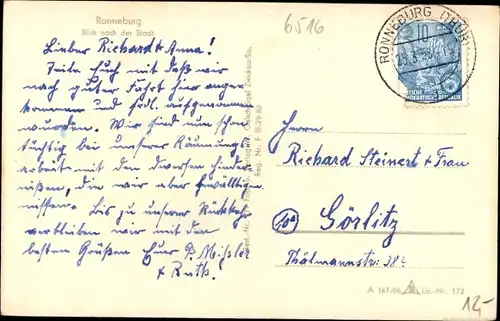 Ronneburg
Blick nach der Stadt
6516
RONNEBURG (THÜR)
10
DEUTSCHE DEMOKRATISCHE REPUBLIK
Lieber Richard & Anna!
Teile Euch mit daß wir
nach guter Fahrt hier ange
kommen und frdl. aufgenommen
wurden. Wir sind nun schon
tüchtig bei unserer Räumungs
arbeit mit den diversen Hinder
nißen, die wir aber bewältigen
müssen. Bis zu unserer Rückkehr
verbleiben wir mit den
besten Grüßen Eure P. Mißler
& Ruth.
Reg. Nr. F III-29-80
Herrn
Richard Steinert & Frau
(10a) Görlitz
Thälmannstr. 38 I
A 167/55 Liz.-Nr. 172
12,-